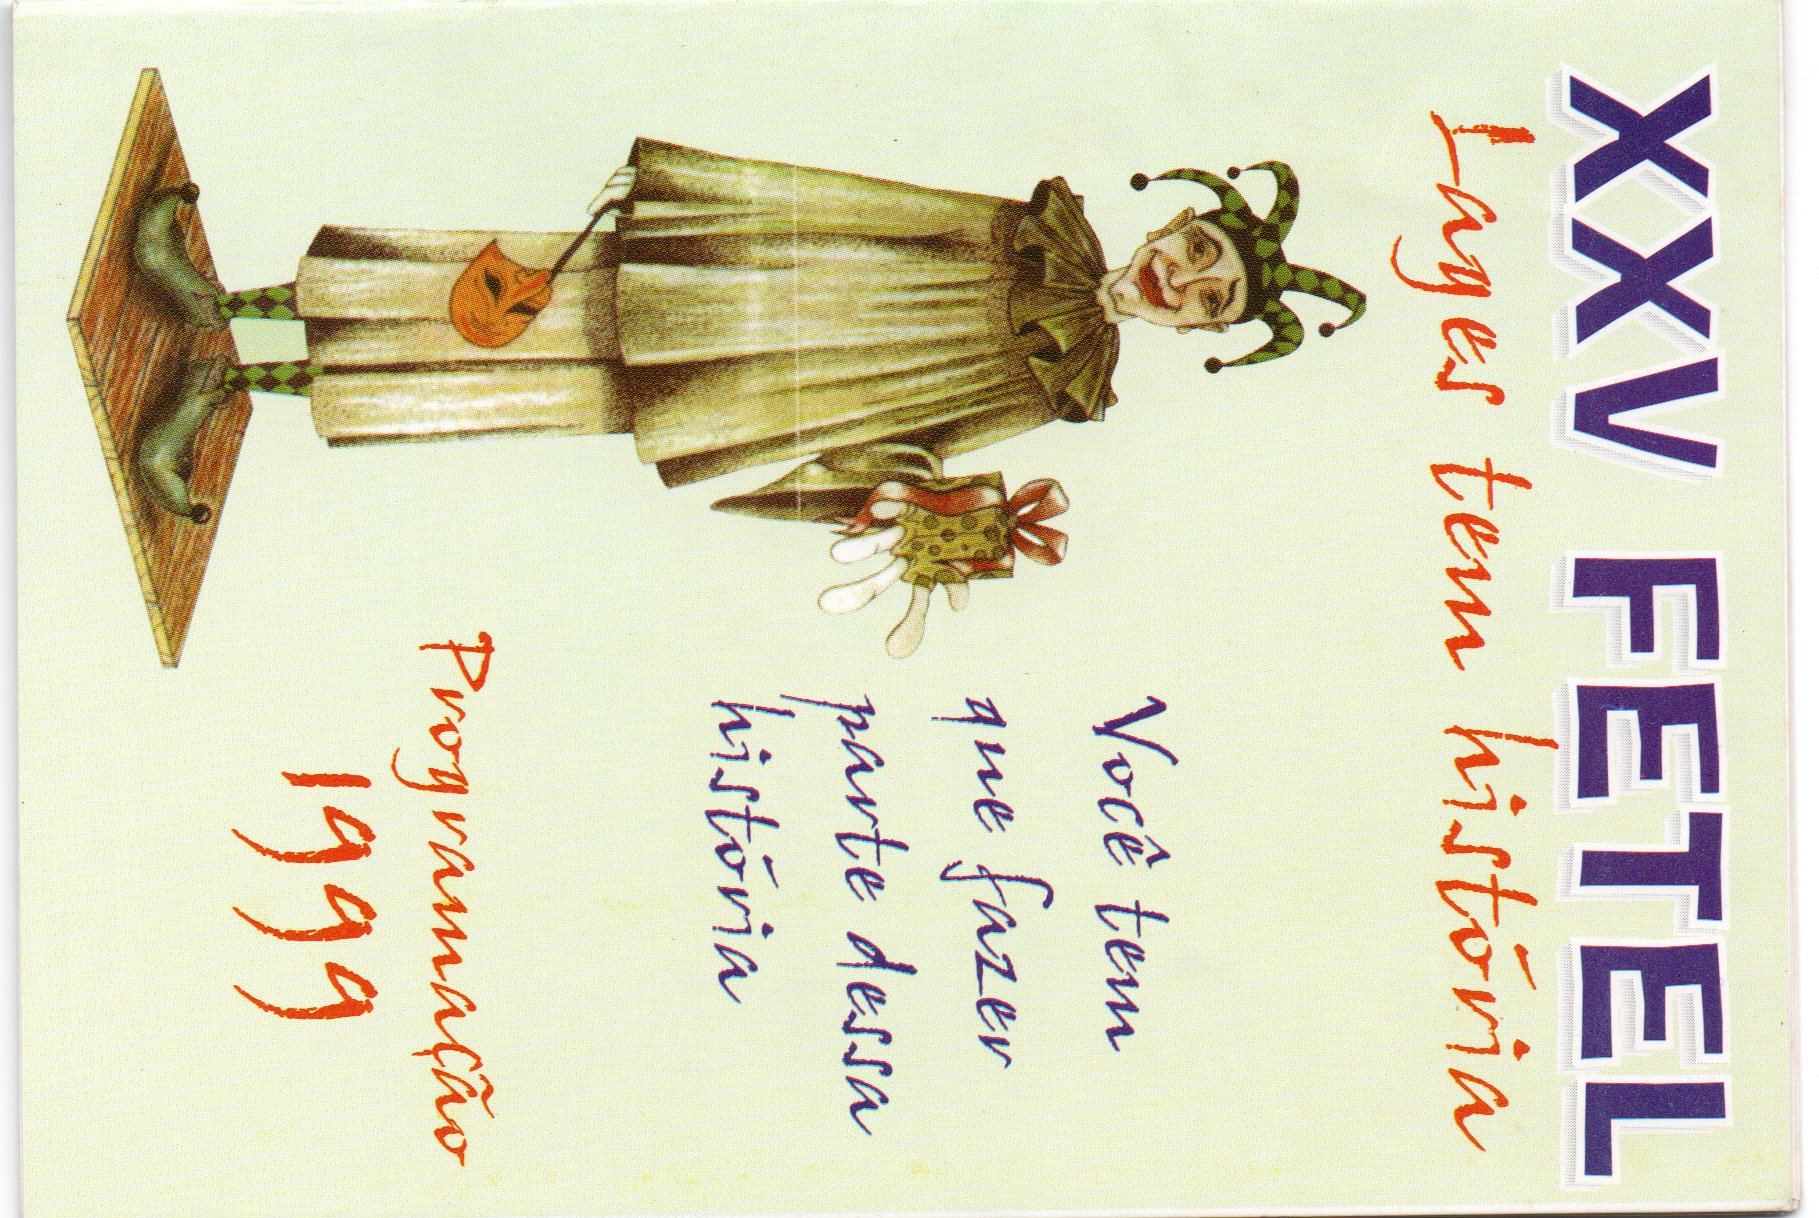 XXV FETEL
Lages tem história
Você tem
que fazer
parte dessa
história
Programação
1999